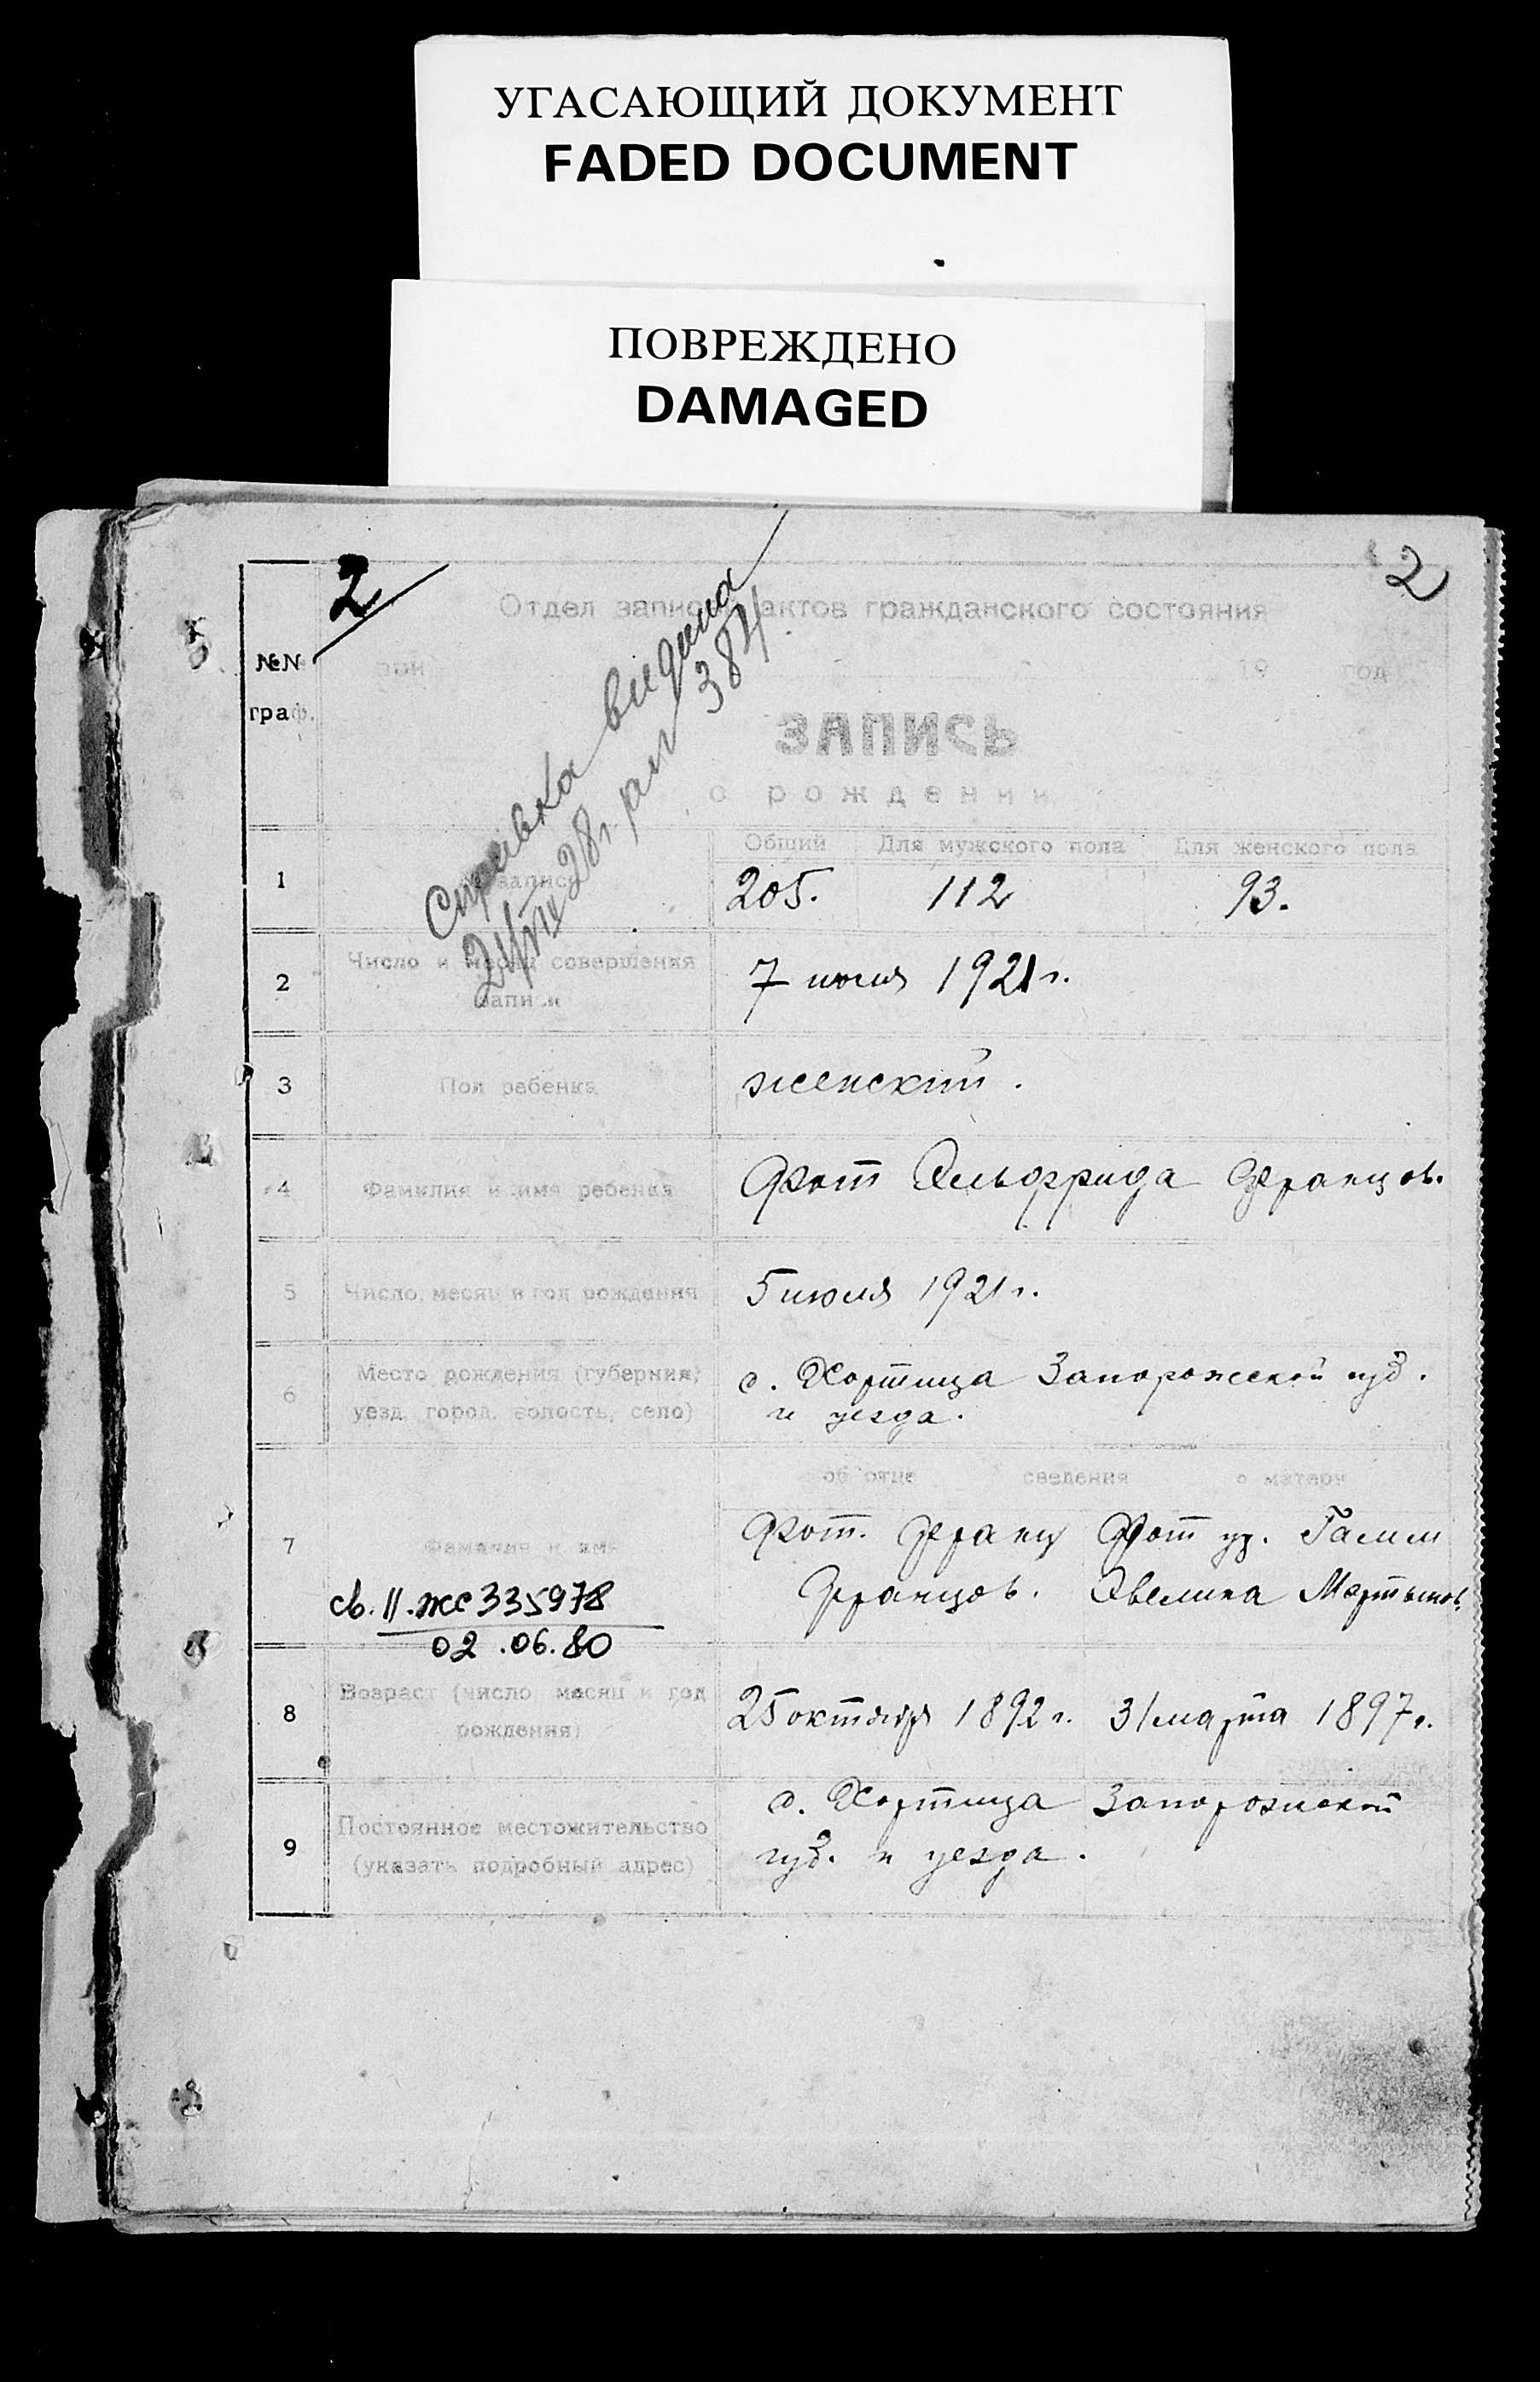 УГАСАЮЩИЙ ДОКУМЕНТ
FADED DOCUMENT
ПОВРЕЖДЕНО
DAMAGED
2
2
Отдел записи актов гражданского состояния
№№
19 год
граф.
Справка видана
28г. 384
ЗАПИСЬ
о рождении
Общий Для мужского пола Для женского пола
1 записи 205. 112 93.
2 Число и месяц совершения
записи
7 июля 1921 г.
3 Пол ребенка женский.
4 Фамилия и имя ребенка Фот Ельфрида Францов.
5 Число, месяц и год рождения 5 июля 1921 г.
6 Место рождения (губерния,
уезд, город, волость, село)
с. Хортица Запорожской губ.
и уезда.
об отце сведения о матери
7 Фамилия и имя
Фот. Франц Фот ур. Гамм
Францов. Эвелина Мартынов.
св. II-ЖС 335978
02.06.80
8 Возраст (число, месяц и год
рождения)
25 октября 1892 г. 31 марта 1897 г.
9 Постоянное местожительство
(указать подробный адрес)
с. Хортица Запорожской
губ. и уезда.